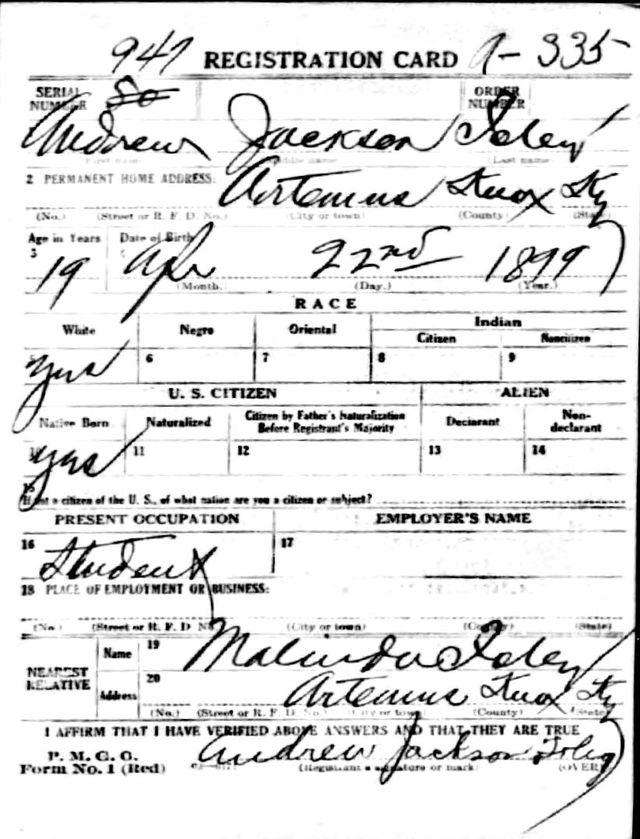 947 REGISTRATION CARD A-335
SERIAL NUMBER 80 ORDER NUMBER
Andrew Jackson Foley
First name Middle name Last name
2 PERMANENT HOME ADDRESS: Artemus Knox Ky
(No.) (Street or R. F. D. No.) (City or town) (County) (State)
Age in Years Date of Birth
3
19 Apr 22nd 1899
(Month.) (Day.) (Year.)
RACE
White Negro Oriental Indian
Citizen Noncitizen
6 7 8 9
yes
U. S. CITIZEN ALIEN
Native Born Naturalized Citizen by Father's Naturalization Before Registrant's Majority Declarant Non-declarant
11 12 13 14
yes
15
If not a citizen of the U. S., of what nation are you a citizen or subject?
PRESENT OCCUPATION EMPLOYER'S NAME
16 17
Student
18 PLACE OF EMPLOYMENT OR BUSINESS:
(No.) (Street or R. F. D. No.) (City or town) (County) (State)
NEAREST RELATIVE Name 19 Malinda Foley
Address 20 Artemus Knox Ky
(No.) (Street or R. F. D. No.) (City or town) (County) (State)
I AFFIRM THAT I HAVE VERIFIED ABOVE ANSWERS AND THAT THEY ARE TRUE
P. M. G. O.
Form No. 1 (Red) Andrew Jackson Foley
(Registrant's signature or mark) (OVER)